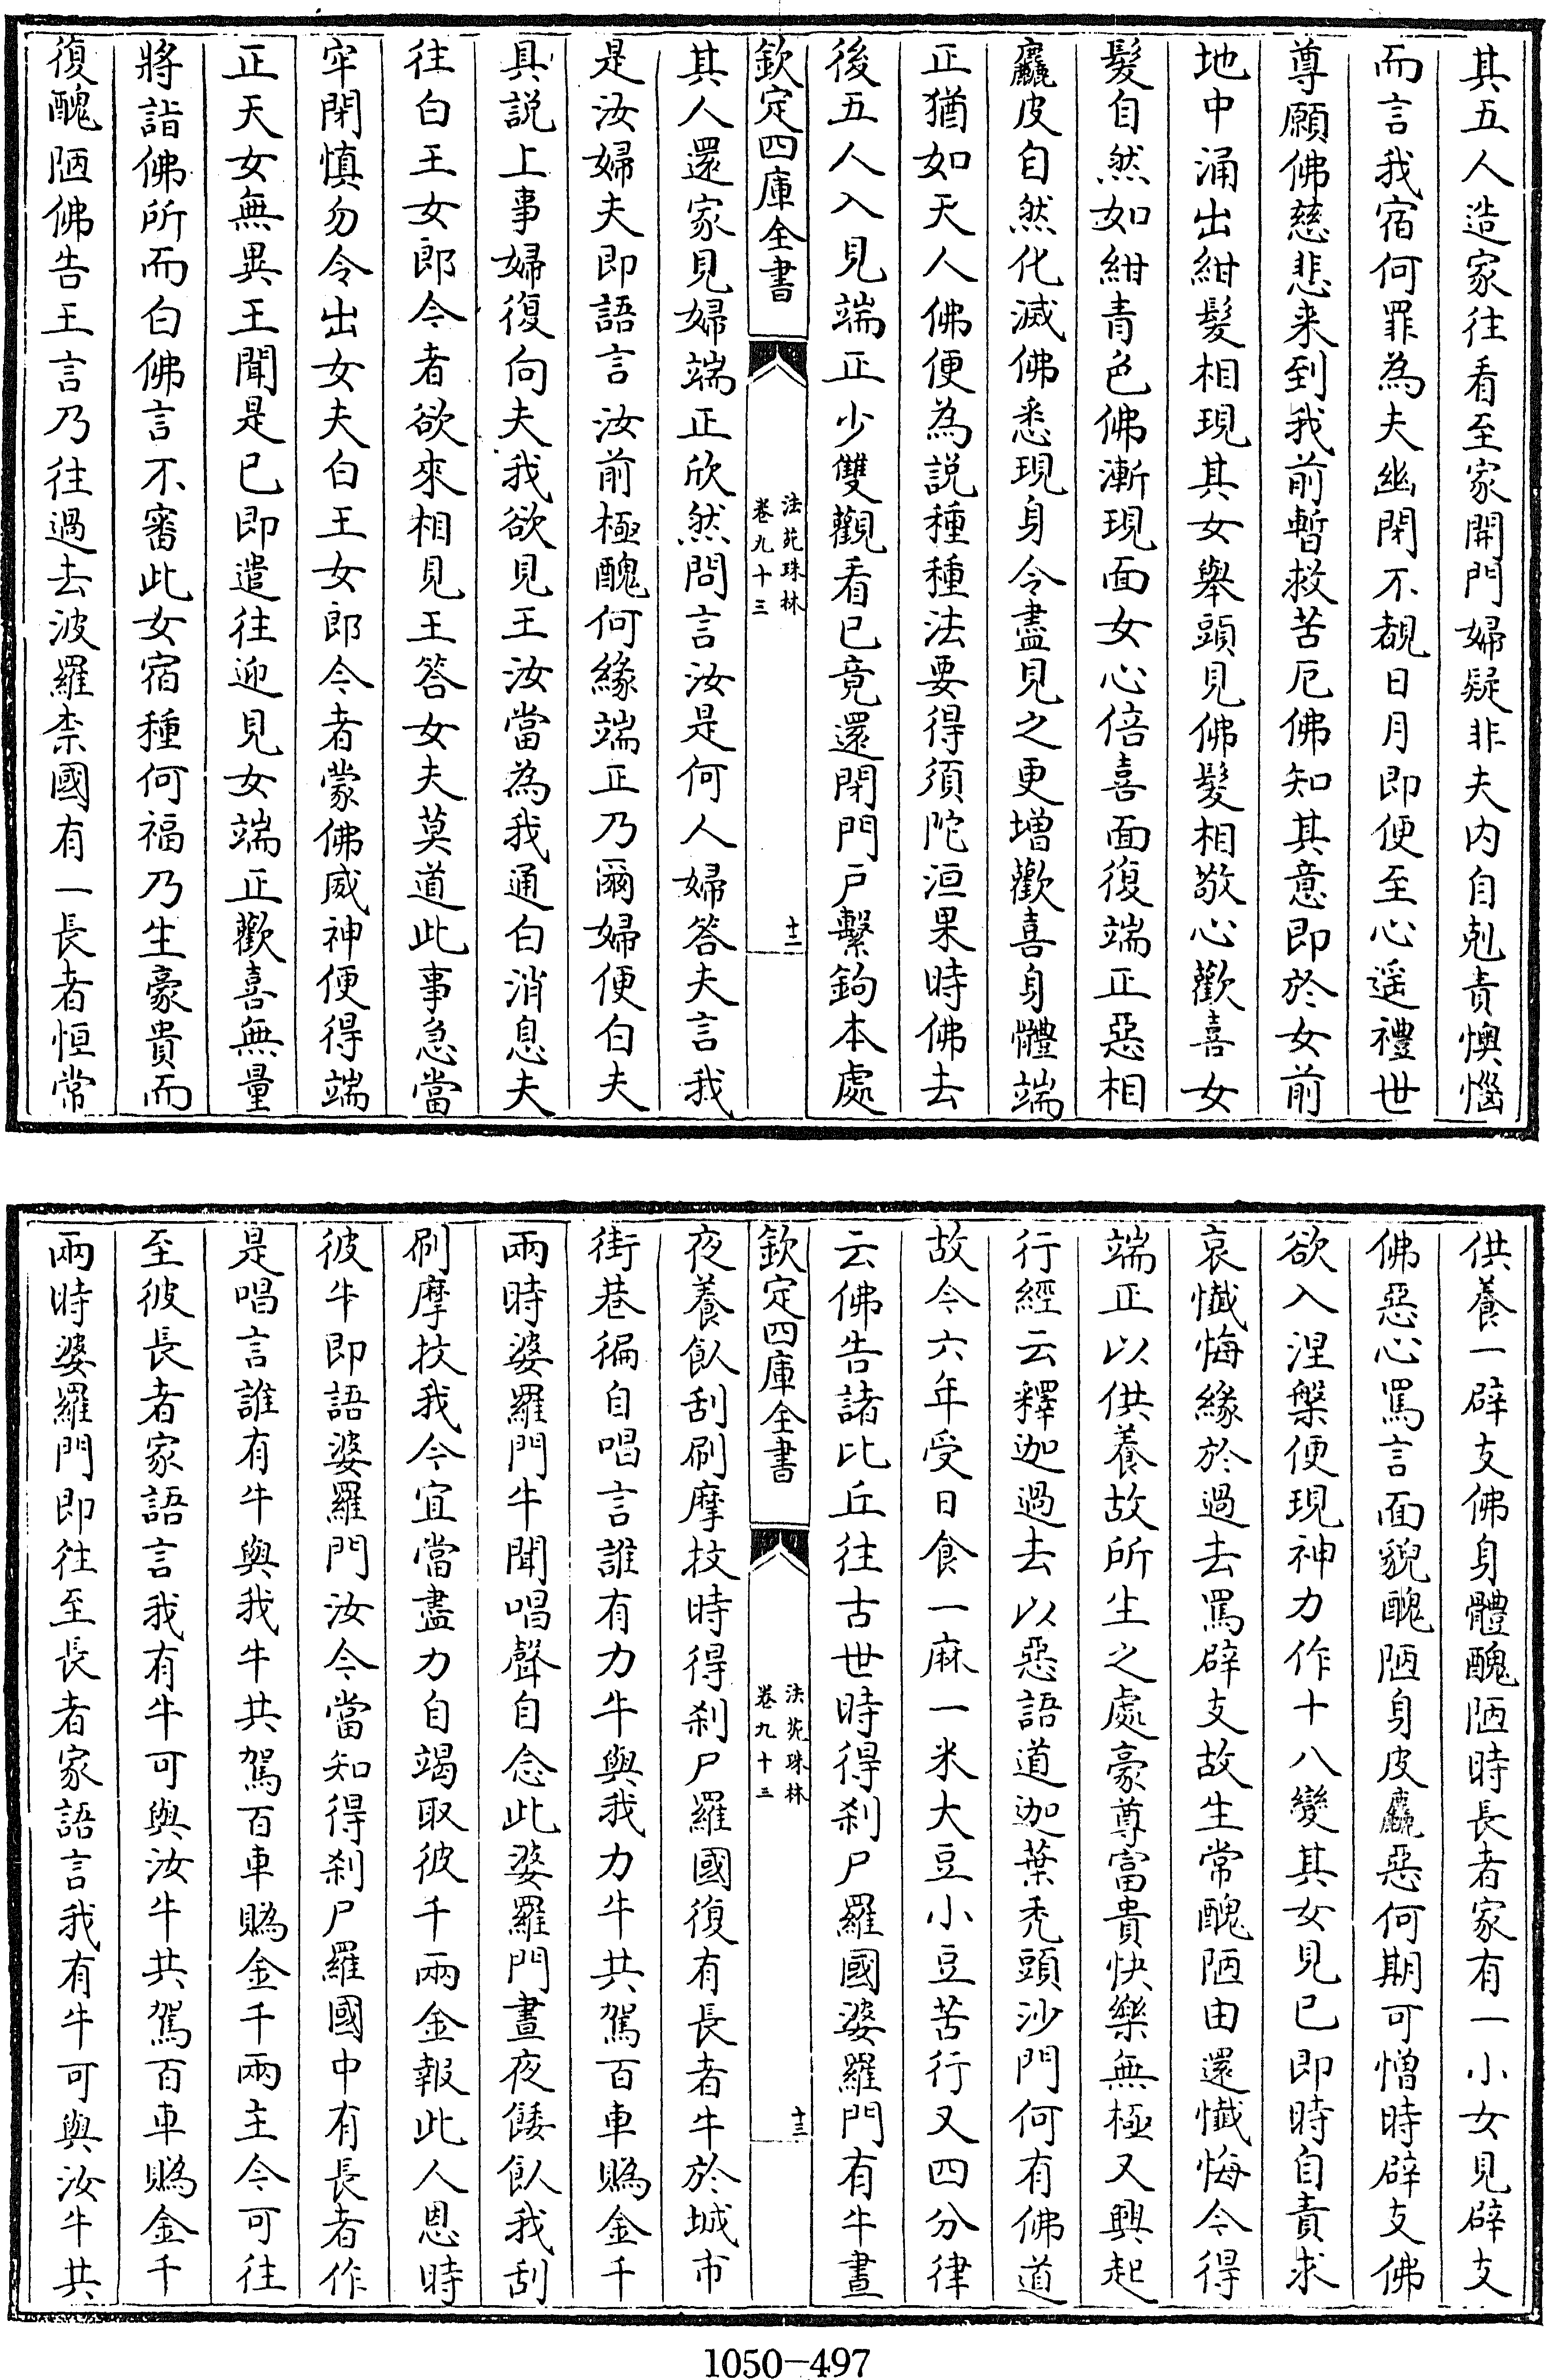 其五人造家往看至家開門婦疑非夫内自剋責懊惱
而言我宿何罪為夫幽閉不覩日月即便至心遥禮世
尊願佛慈悲来到我前暫救苦厄佛知其意即於女前
地中涌出紺髮相現其女舉頭見佛髮相敬心歡喜女
髮自然如紺青色佛漸現面女心倍喜面復端正惡相
麤皮自然化滅佛悉現身令盡見之更增歡喜身體端
正猶如天人佛便為説種種法要得須陀洹果時佛去
後五人入見端正少雙觀看已竟還閉門戸繫鉤本處
欽定四庫全書
法苑珠林
卷九十三
十二
其人還家見婦端正欣然問言汝是何人婦答夫言我
是汝婦夫即語言汝前極醜何緣端正乃爾婦便白夫
具説上事婦復向夫我欲見王汝當為我通白消息夫
往白王女郎今者欲來相見王答女夫莫道此事急當
牢閉慎勿令出女夫白王女郎今者蒙佛威神便得端
正天女無異王聞是已即遣往迎見女端正歡喜無量
將詣佛所而白佛言不審此女宿種何福乃生豪貴而
復醜陋佛告王言乃往過去波羅柰國有一長者恒常
供養一辟支佛身體醜陋時長者家有一小女見辟支
佛惡心罵言面貌醜陋身皮麤惡何期可憎時辟支佛
欲入涅槃便現神力作十八變其女見已即時自責求
哀懺悔緣於過去罵辟支故生常醜陋由還懺悔今得
端正以供養故所生之處豪尊富貴快樂無極又興起
行經云釋迦過去以惡語道迦葉秃頭沙門何有佛道
故今六年受日食一麻一米大豆小豆苦行又四分律
云佛告諸比丘往古世時得刹尸羅國婆羅門有牛晝
欽定四庫全書
法苑珠林
卷九十三
十三
夜養飤刮刷摩抆時得刹尸羅國復有長者牛於城市
街巷徧自唱言誰有力牛與我力牛共駕百車賭金千
兩時婆羅門牛聞唱聲自念此婆羅門晝夜餧飤我刮
刷摩抆我今宜當盡力自竭取彼千兩金報此人恩時
彼牛即語婆羅門汝今當知得刹尸羅國中有長者作
是唱言誰有牛與我牛共駕百車賭金千兩主今可往
至彼長者家語言我有牛可與汝牛共駕百車賭金千
兩時婆羅門即往至長者家語言我有牛可與汝牛共
1050-497